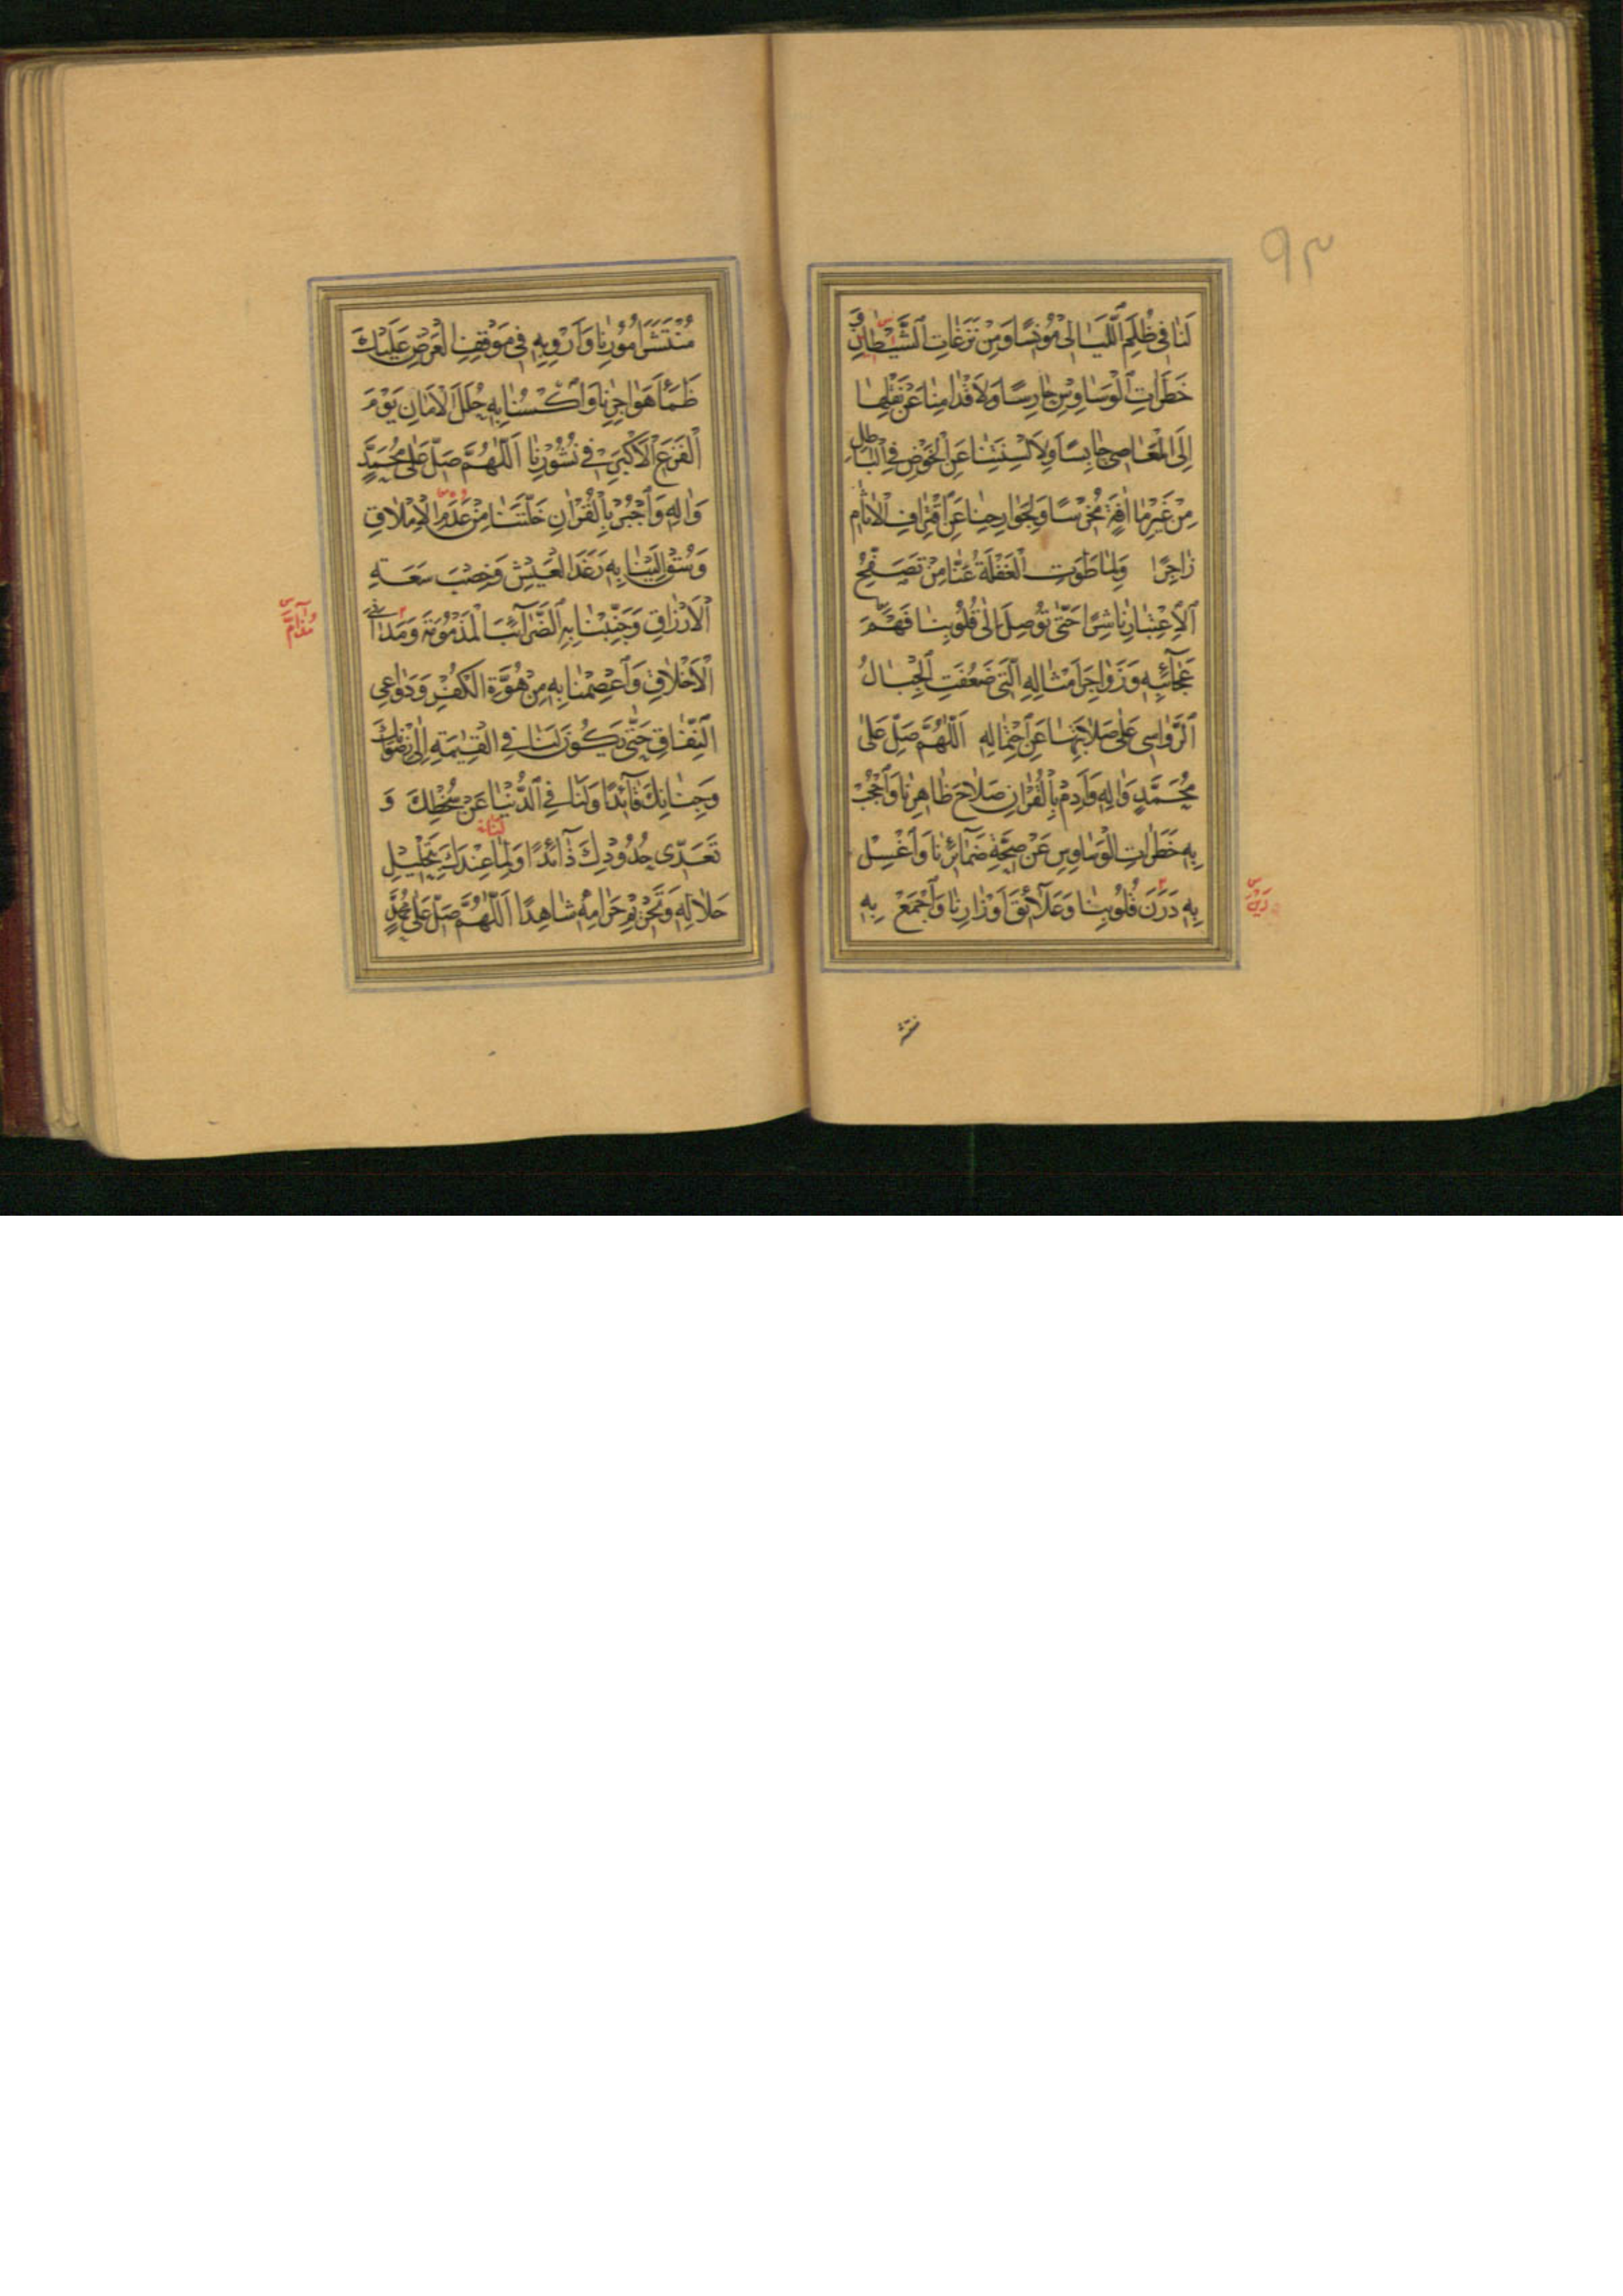 ۹۳
لَنَا فِي ظُلَمِ ٱللَّيَالِي مُونِسًا وَمِنْ نَزَغَاتِ ٱلشَّيْطَانِ وَ
خَطَرَاتِ ٱلْوَسَاوِسِ حَارِسًا وَلِأَقْدَامِنَا عَنْ نَقْلِهَا
إِلَى الْمَعَاصِي حَابِسًا وَلِأَلْسِنَتِنَا عَنِ الْخَوْضِ فِي الْبَاطِلِ
مِنْ غَيْرِ مَا آفَةٍ مُخْرِسًا وَلِجَوَارِحِنَا عَنِ ٱقْتِرَافِ الْآثَامِ
زَاجِرًا وَلِمَا طَوَتِ الْغَفْلَةُ عَنَّا مِنْ تَصَفُّحِ
ٱلْاِعْتِبَارِ نَاشِرًا حَتَّى تُوصِلَ إِلَى قُلُوبِنَا فَهْمَ
عَجَائِبِهِ وَزَوَاجِرَ أَمْثَالِهِ ٱلَّتِي ضَعُفَتِ ٱلْجِبَالُ
ٱلرَّوَاسِي عَلَى صَلَابَتِهَا عَنِ ٱحْتِمَالِهِ اَللّٰهُمَّ صَلِّ عَلَى
مُحَمَّدٍ وَالِهِ وَأَدِمْ بِالْقُرْانِ صَلَاحَ ظَاهِرِنَا وَٱحْجُبْ
بِهِ خَطَرَاتِ الْوَسَاوِسِ عَنْ صِحَّةِ ضَمَائِرِنَا وَٱغْسِلْ
بِهِ دَرَنَ قُلُوبِنَا وَعَلَائِقَ أَوْزَارِنَا وَٱجْمَعْ بِهِ
منتشر
مُنْتَشَرَ أُمُورِنَا وَأَرْوِ بِهِ فِي مَوْقِفِ الْعَرْضِ عَلَيْكَ
ظَمَأَ هَوَاجِرِنَا وَٱكْسُنَا بِهِ حُلَلَ الْأَمَانِ يَوْمَ
الْفَزَعِ الْأَكْبَرِ فِي نُشُورِنَا اَللّٰهُمَّ صَلِّ عَلَى مُحَمَّدٍ
وَالِهِ وَٱجْبُرْ بِالْقُرْانِ خَلَّتَنَا مِنْ عَدَمِ الْإِمْلَاقِ
وَسُقْ إِلَيْنَا بِهِ رَغَدَ الْعَيْشِ وَخِصْبَ سَعَةِ
الْأَرْزَاقِ وَجَنِّبْنَا بِهِ ٱلضَّرَائِبَ الْمَذْمُومَةَ وَمَدَانِيَ
الْأَخْلَاقِ وَٱعْصِمْنَا بِهِ مِنْ هُوَّةِ الْكُفْرِ وَدَوَاعِي
ٱلنِّفَاقِ حَتَّى يَكُونَ لَنَا فِي الْقِيٰمَةِ إِلَى رِضْوَانِكَ
وَجِنَانِكَ قَائِدًا وَلَنَا فِي ٱلدُّنْيَا عَنْ سُخْطِكَ وَ
تَعَدِّي حُدُودِكَ ذَائِدًا وَلِمَا عِنْدَكَ بِتَحْلِيلِ
حَلَالِهِ وَتَحْرِيمِ حَرَامِهِ شَاهِدًا اَللّٰهُمَّ صَلِّ عَلَى مُحَمَّدٍ